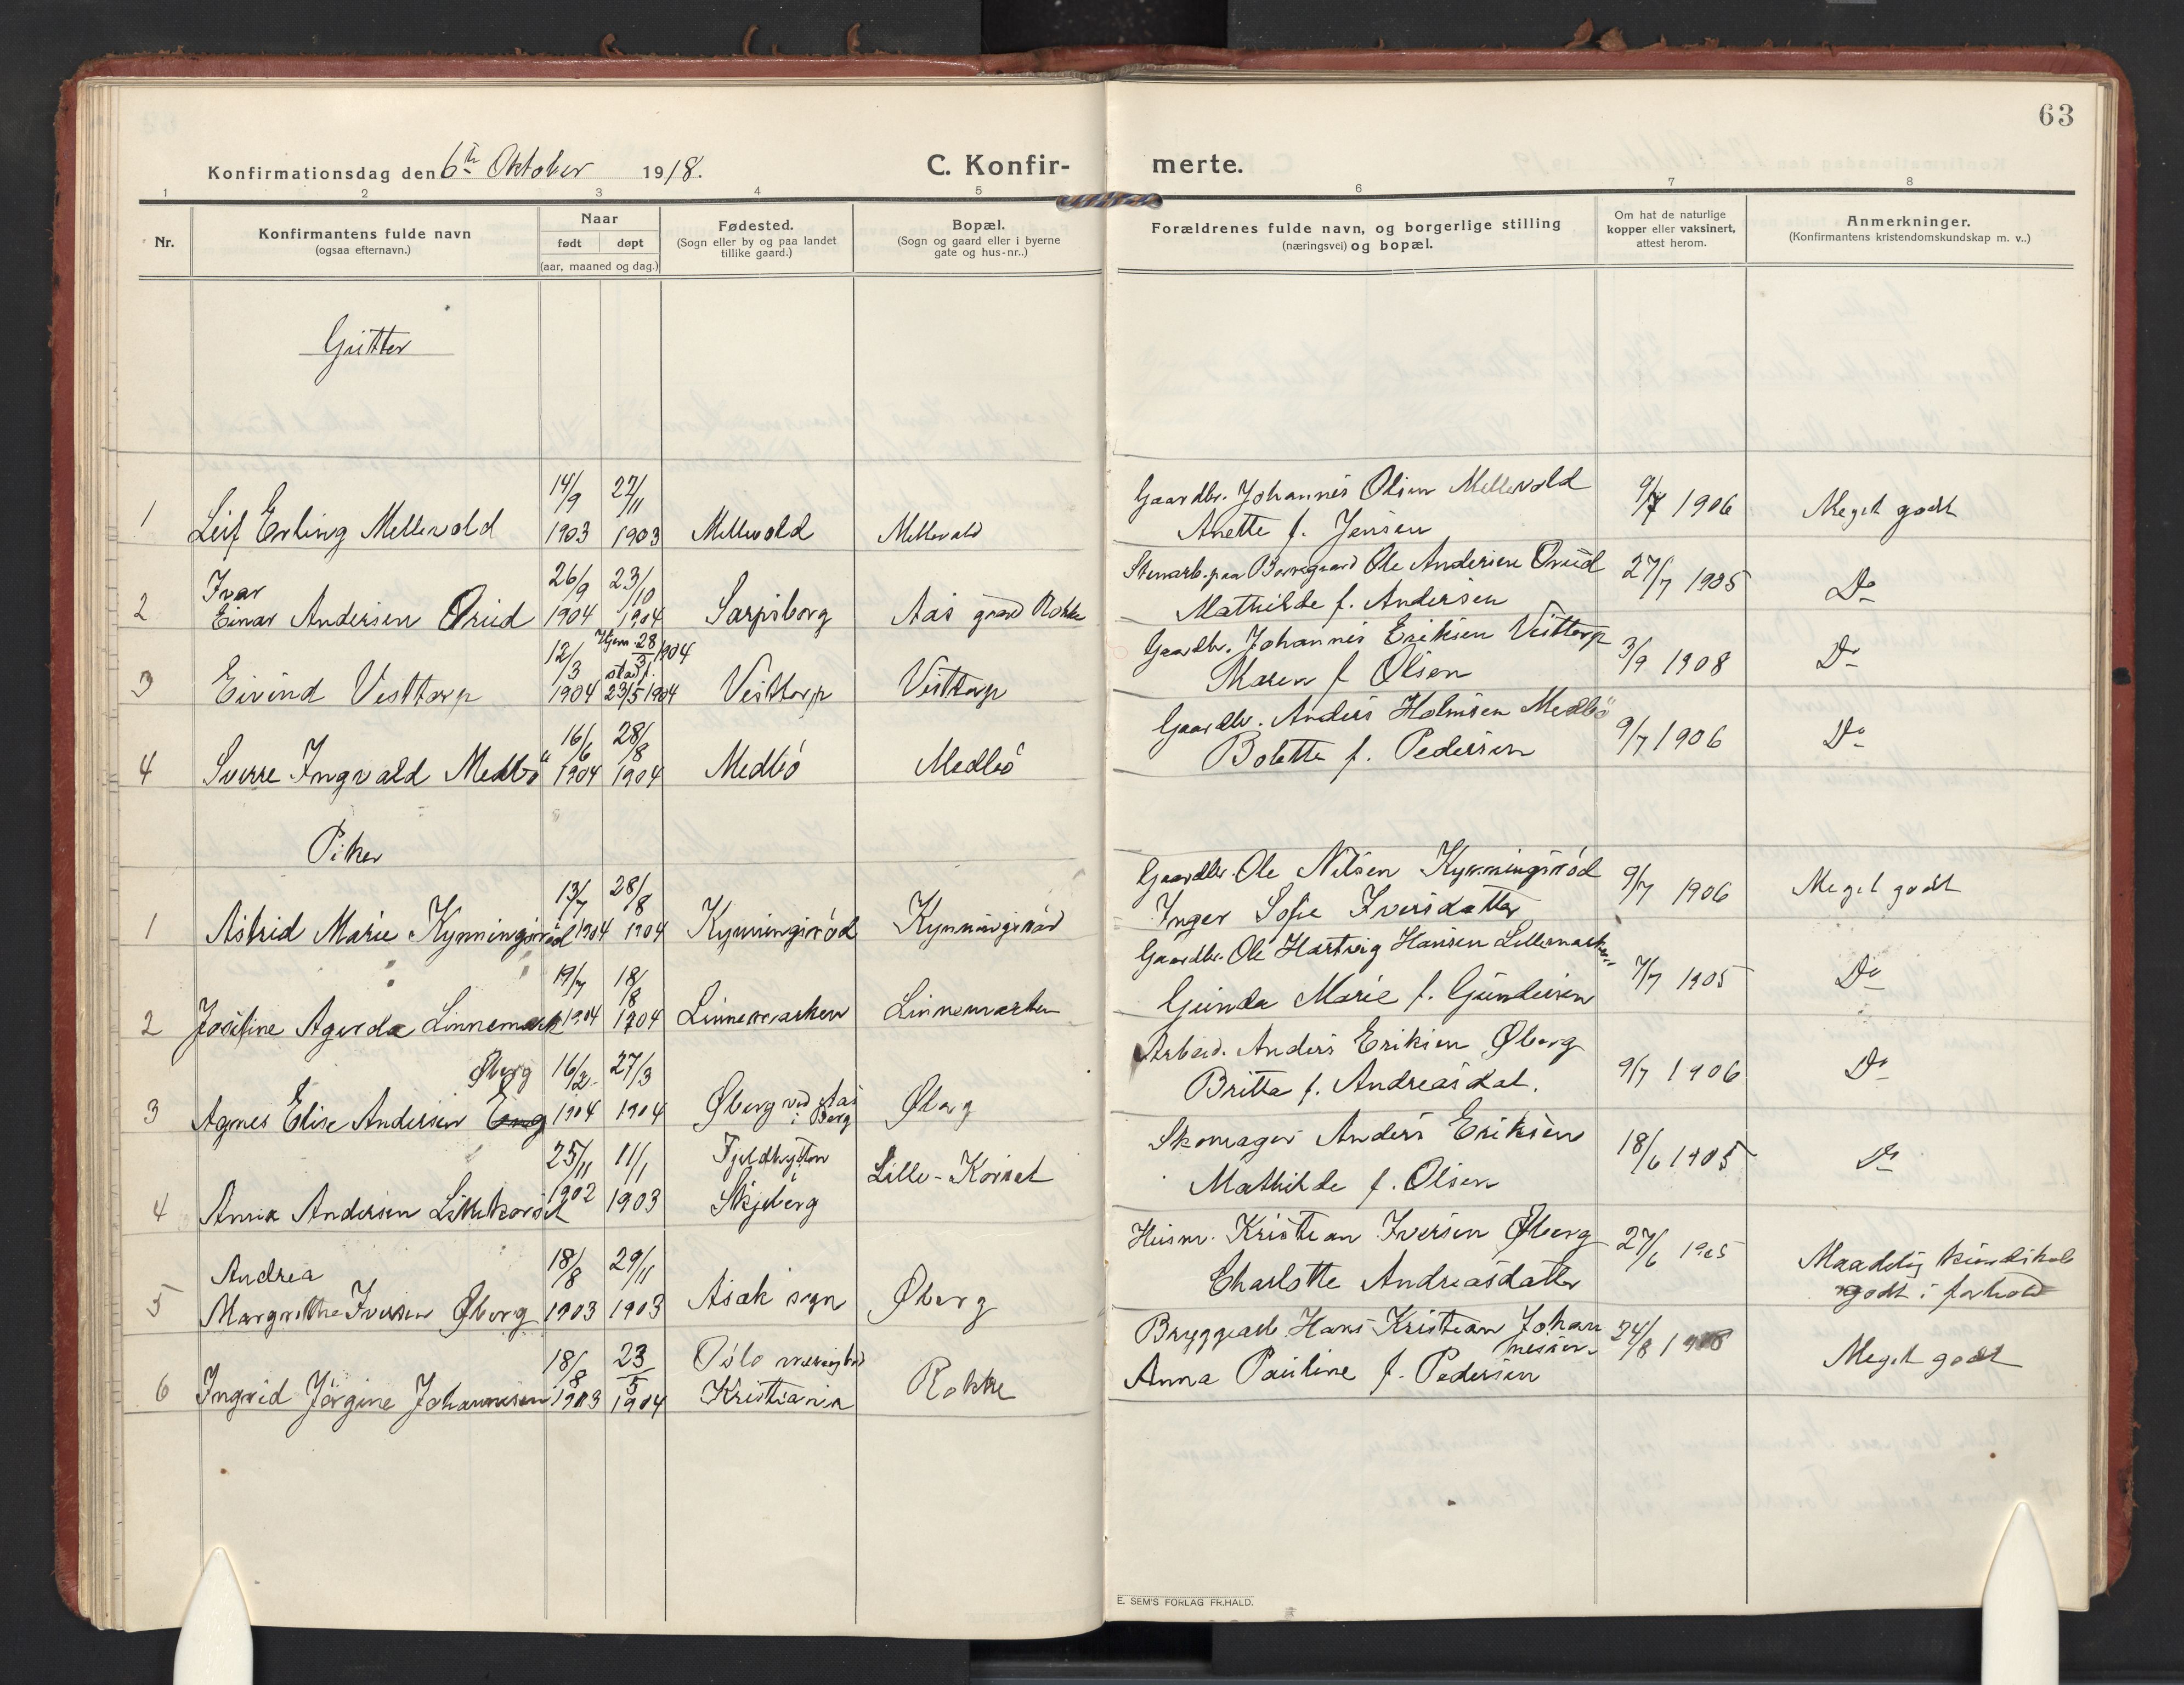 63
Konfirmationsdag den 6te Oktober 1918.
C. Konfir-
merte.
1 2 3 4 5 6 7 8
Nr.
Konfirmantens fulde navn
(ogsaa efternavn.)
Naar
født døpt
(aar, maaned og dag.)
Fødested.
(Sogn eller by og paa landet
tillike gaard.)
Bopæl.
(Sogn og gaard eller i byerne
gate og hus-nr..)
Forældrenes fulde navn, og borgerlige stilling
(næringsvei) og bopæl.
Om hat de naturlige
kopper eller vaksinert,
attest herom.
Anmerkninger.
(Konfirmantens kristendomskundskap m. v..)
Gutter
14/9 27/11 Gaardbr. Johannes Olsen Mellevold 9/7 1906 Meget godt
1 Leif Erling Mellevold 1903 1903 Mellevold Mellevold Anette f. Jensen
Ivar 26/9 23/10 Stenarb. paa Borregaard Ole Andersen Ørud 27/7 1905 Do
2 Einar Andersen Ørud 1904 1904 Sarpsborg Aas grænd Rokke Mathilde f. Andersen
12/3 Hjem 28/3 1904 Gaardbr. Johannes Eriksen Vesttorp 3/9 1908 Do
stadf.
3 Eivind Vesttorp 1904 23/5 1904 Vesttorp Vesttorp Maren f Olsen
16/6 28/8 Gaardbr. Anders Holmsen Medbö 9/7 1906 Do
4 Sverre Ingvald Medbö 1904 1904 Medbö Medbö Bolette f. Pedersen
Piker
13/7 28/8 Gaardbr. Ole Nilsen Kynningsröd 9/7 1906 Meget godt
1 Astrid Marie Kynningsröd 1904 1904 Kynningsröd Kynningsröd Inger Sofie Iversdatter
19/7 18/8 Gaardbr. Ole Hartvig Hansen 7/7 1905 Do
2 Josefine Agerda Linnemark 1904 1904 Linnemarken Linnemarken Gunda Marie f. Gundersen
Øberg 16/2 27/3 Arbeid. Anders Eriksen Øberg 9/7 1906 Do
3 Agnes Elise Andersen Eng 1904 1904 Øberg ved Aas i Berg Øberg Britta f. Andreasdat.
25/11 11/1 Skomager Anders Eriksen 18/6 1905 Do
4 Anna Andersen Lillekorset 1902 1903 Skjeberg Lille-Korset Mathilde f. Olsen
Andrea 18/8 29/11 Husm. Kristian Iversen Øberg 27/6 1905 Maadelig kundskab
5 Margrethe Iversen Øberg 1903 1903 Asak sogn Øberg Charlotte Andreasdatter godt i forhold
18/8 23/5 Oslo menighed Bryggearb. Hans Kristian Johan
nessen. 24/8
6 Ingrid Jörgine Johannesen 1903 1904 Kristiania Rokke Anna Pauline f. Pedersen Meget godt
E. SEM'S FORLAG FR.HALD.